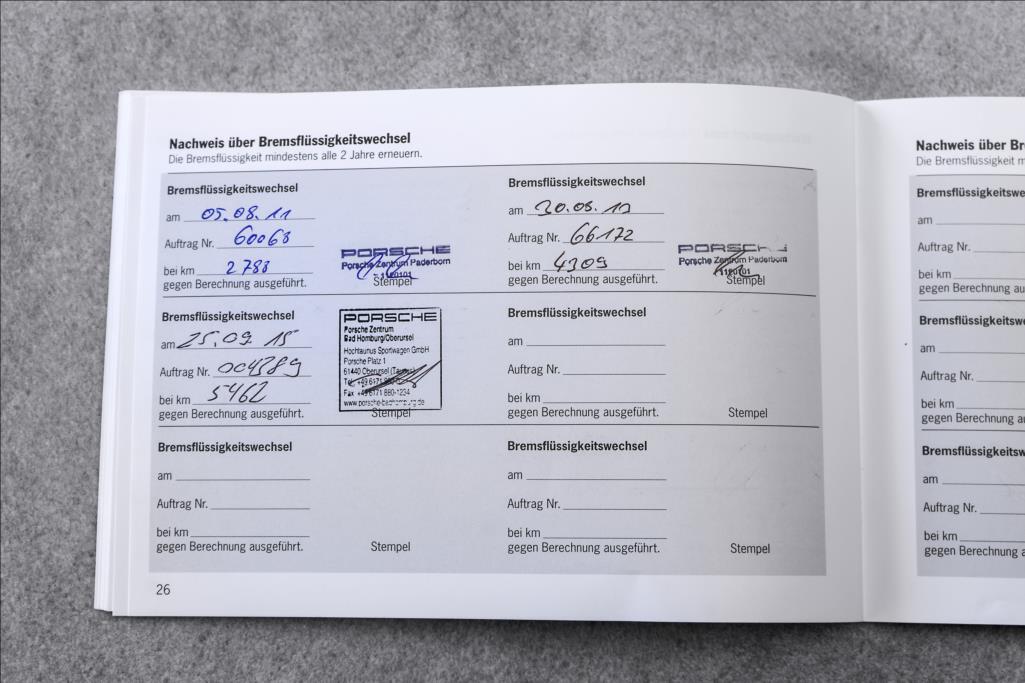 Nachweis über Bremsflüssigkeitswechsel
Die Bremsflüssigkeit mindestens alle 2 Jahre erneuern.
Bremsflüssigkeitswechsel
am 05.08.11
Auftrag Nr. 60068
bei km 2788
gegen Berechnung ausgeführt.
PORSCHE
Porsche Zentrum Paderborn
1120101
Stempel
Bremsflüssigkeitswechsel
am 30.08.13
Auftrag Nr. 66172
bei km 4309
gegen Berechnung ausgeführt.
PORSCHE
Porsche Zentrum Paderborn
1120101
Stempel
Bremsflüssigkeitswechsel
am 25.09.15
Auftrag Nr. 004389
bei km 5462
gegen Berechnung ausgeführt.
PORSCHE
Porsche Zentrum
Bad Homburg/Oberursel
Hochtaunus Sportwagen GmbH
Porsche Platz 1
61440 Oberursel (Taunus)
Fax +49 6171 880-1234
www.porsche-badhomburg.de
Stempel
Bremsflüssigkeitswechsel
am
Auftrag Nr.
bei km
gegen Berechnung ausgeführt.
Stempel
Bremsflüssigkeitswechsel
am
Auftrag Nr.
bei km
gegen Berechnung ausgeführt.
Stempel
Bremsflüssigkeitswechsel
am
Auftrag Nr.
bei km
gegen Berechnung ausgeführt.
Stempel
26
Nachweis über Br
Die Bremsflüssigkeit m
Bremsflüssigkeitswe
am
Auftrag Nr.
bei km
gegen Berechnung au
Bremsflüssigkeitswe
am
Auftrag Nr.
bei km
gegen Berechnung au
Bremsflüssigkeitsw
am
Auftrag Nr.
bei km
gegen Berechnung a